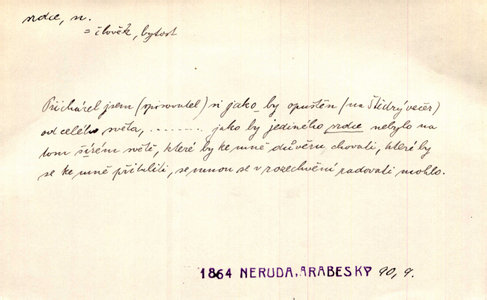 srdce, n.
= člověk, bytost
Přicházel jsem (spisovatel) si jako by opuštěn (na Štědrý večer)
od celého světa, ......... jako by jediného srdce nebylo na
tom šírém světě, které by ke mně důvěru chovati, které by
se ke mně přiblíliti, se mnou se v rozechvění radovati mohlo.
1864 NERUDA, ARABESKY 90, 9.